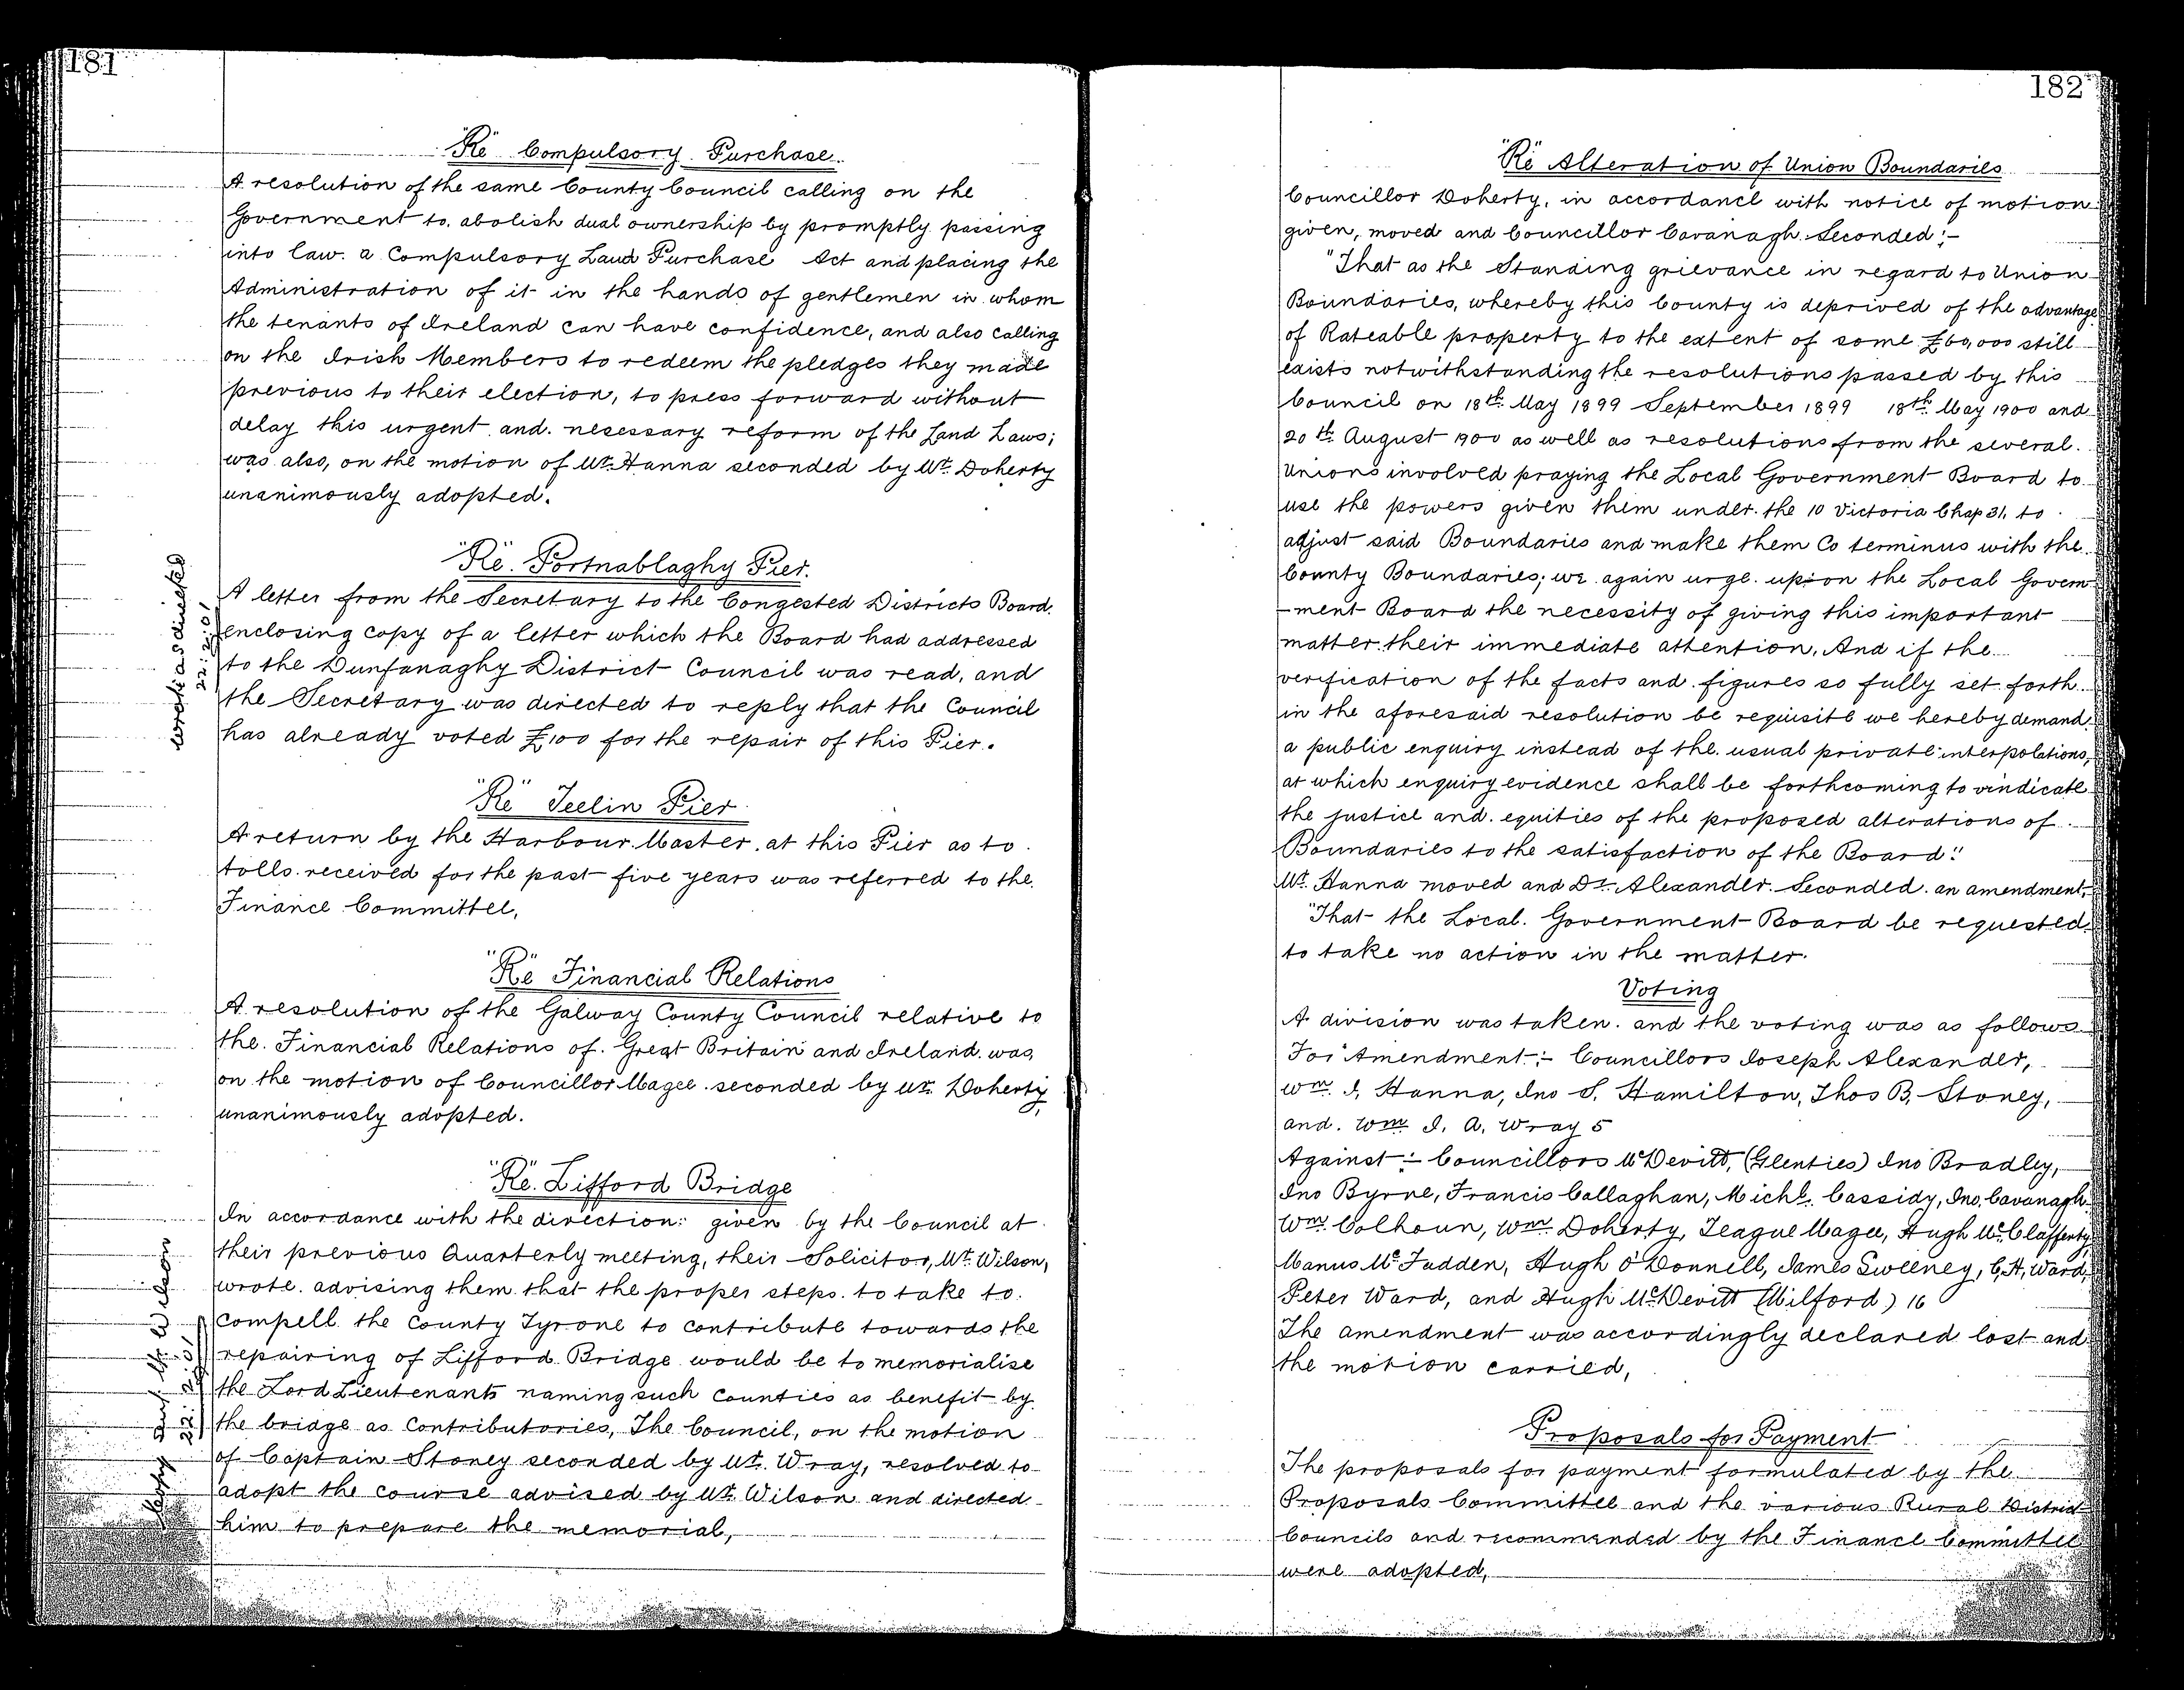 181
"Re" Compulsory Purchase.
A resolution of the same County Council calling on the
Government to abolish dual ownership by promptly passing
into law a Compulsory Land Purchase Act and placing the
Administration of it in the hands of gentlemen in whom
the tenants of Ireland can have confidence, and also calling
on the Irish Members to redeem the pledges they made
previous to their election, to press forward without
delay this urgent and necessary reform of the Land Laws;
was also, on the motion of Mr. Hanna seconded by Mr. Doherty
unanimously adopted.
"Re". Portnablaghy Pier.
wrote as directed
22:2:01
A letter from the Secretary to the Congested Districts Board,
enclosing copy of a letter which the Board had addressed
to the Dunfanaghy District Council was read, and
the Secretary was directed to reply that the Council
has already voted £100 for the repair of this Pier.
"Re" Teelin Pier
A return by the Harbour Master at this Pier as to
tolls received for the past five years was referred to the
Finance Committee,
"Re" Financial Relations
A resolution of the Galway County Council relative to
the Financial Relations of Great Britain and Ireland was,
on the motion of Councillor Magee seconded by Mr. Doherty
unanimously adopted.
"Re". Lifford Bridge
Mr. Wilson
In accordance with the direction: given by the Council at
their previous Quarterly meeting, their Solicitor, Mr. Wilson,
wrote advising them that the proper steps to take to
compell the County Tyrone to contribute towards the
repairing of Lifford Bridge would be to memorialise
the Lord Lieutenants naming such Counties as benefit by
the bridge as Contributories, The Council, on the motion
of Captain Stoney seconded by Mr. Wray, resolved to
adopt the course advised by Mr. Wilson and directed
him to prepare the memorial,
182
"Re" Alteration of Union Boundaries
Councillor Doherty, in accordance with notice of motion
given, moved and Councillor Cavanagh Seconded:-
"That as the Standing grievance in regard to Union
Boundaries, whereby this County is deprived of the advantage
of Rateable property to the extent of some £60,000 still
exists notwithstanding the resolutions passed by this
Council on 18th May 1899 September 1899 18th May 1900 and
20th August 1900 as well as resolutions from the several
Unions involved praying the Local Government Board to
use the powers given them under the 10 Victoria Chap 31, to
adjust said Boundaries and make them Co terminus with the
County Boundaries; we again urge upon the Local Govern
-ment Board the necessity of giving this important
matter their immediate attention, And if the
verification of the facts and figures so fully set forth
in the aforesaid resolution be requisite we hereby demand
a public enquiry instead of the usual private interpolations,
at which enquiry evidence shall be forthcoming to vindicate
the justice and equities of the proposed alterations of
Boundaries to the satisfaction of the Board."
Mr. Hanna moved and Dr. Alexander Seconded an amendment,
"That the Local Government Board be requested
to take no action in the matter.
Voting
A division was taken and the voting was as follows
For Amendment:- Councillors Joseph Alexander,
Wm. J. Hanna, Jno S. Hamilton, Thos B. Stoney,
and Wm J. A. Wray 5
Against:- Councillors McDevitt, (Glenties) Jno Bradley,
Jno Byrne, Francis Callaghan, Michl. Cassidy, Jno. Cavanagh
Wm Colhoun, Wm Doherty, Teague Magee, Hugh McClafferty,
Manus McFadden, Hugh O'Donnell, James Sweeney, C, A, Ward,
Peter Ward, and Hugh McDevitt (Milford) 16
The amendment was accordingly declared lost and
the motion carried,
Proposals for Payment
The proposals for payment formulated by the
Proposals Committee and the various Rural District
Councils and recommended by the Finance Committee
were adopted,